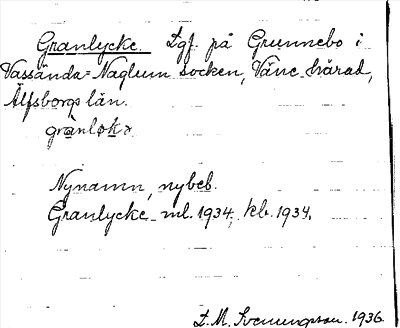 Granlycke. Lgf. på Grunnebo i
Vassända=Naglum socken, Väne härad,
Älfsborgs län.
grànløkə
Nynamn, nybeb.
Granlycke ml. 1934, kb. 1934.
L. M. Svenungsson. 1936.